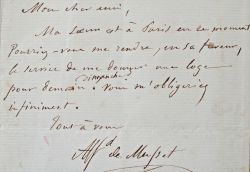 Mon cher ami,
Ma sœur est à Paris en ce moment
Pourriez-vous me rendre, en sa faveur,
le service de me donner une loge
dimanche
pour demain. Vous m'obligeriez
infiniment.
Tout à vous
Alfd de Musset